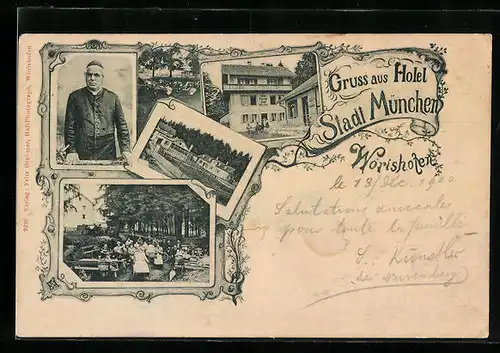 Gruss aus Hotel
Stadt München
Wörishofen
le 13/Dec. 1900
Salutations amicales
pour toute la famille
S. Künstler
de Nuremberg
Verlag: Fritz Grebmer, Hof-Photograph, Wörishofen